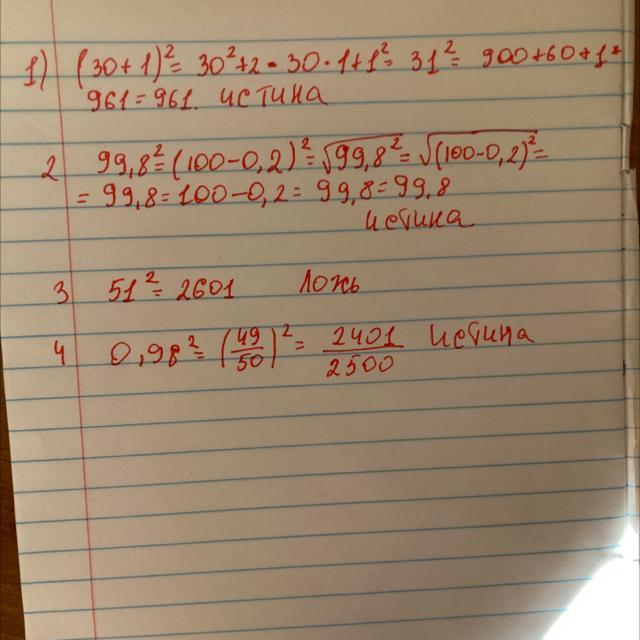 1) (30+1)²= 30²+2·30·1+1²= 31²= 900+60+1²
961=961. истина
2 99,8²=(100-0,2)²=√99,8²=√(100-0,2)²=
= 99,8=100-0,2= 99,8=99,8
истина
3 51²=2601 Ложь
4 0,98²=(49/50)²= 2401/2500 истина